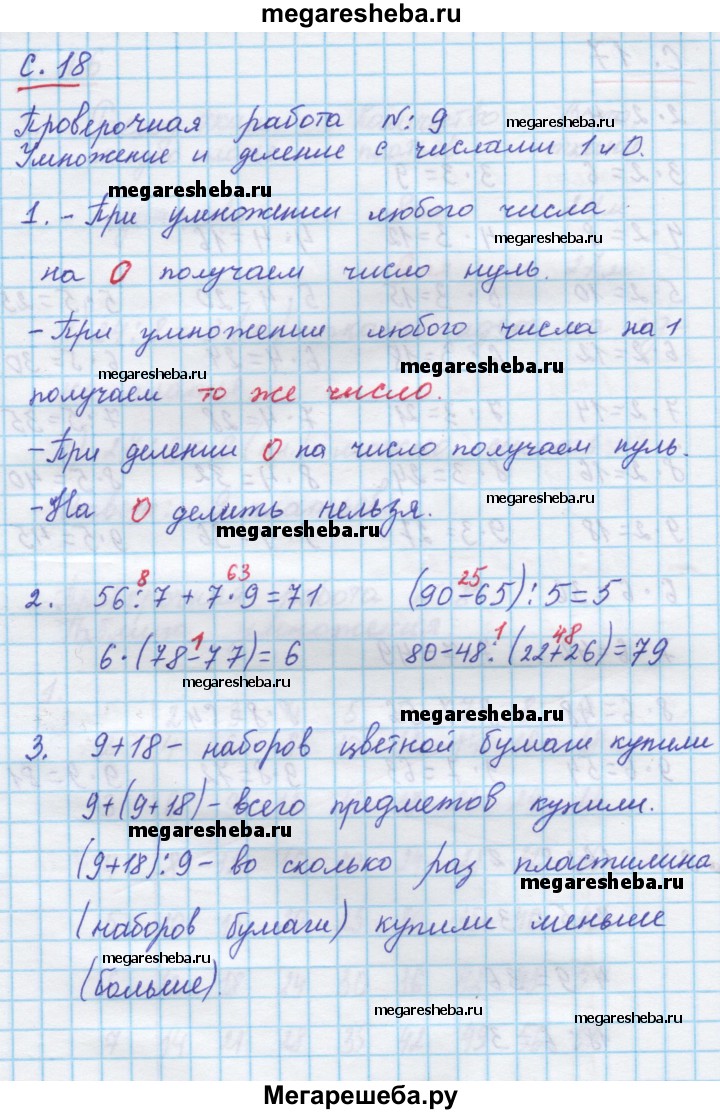 megaresheba.ru
с. 18
Проверочная работа №: 9
megaresheba.ru
Умножение и деление с числами 1 и 0.
megaresheba.ru
1. - При умножении любого числа
megaresheba.ru
на 0 получаем число нуль.
- При умножении любого числа на 1
megaresheba.ru megaresheba.ru
получаем то же число.
- При делении 0 на число получаем нуль.
megaresheba.ru
- На 0 делить нельзя.
megaresheba.ru
8 63 25
2. 56:7 + 7·9 = 71 (90-65):5 = 5
1 1 48
6·(78-77) = 6 80-48:(22+26) = 79
megaresheba.ru
megaresheba.ru
3. 9+18 - наборов цветной бумаги купили
9+(9+18) - всего предметов купили.
megaresheba.ru
(9+18):9 - во сколько раз пластилина
megaresheba.ru
(наборов бумаги) купили меньше
megaresheba.ru
(больше).
megaresheba.ru
Мегарешеба.ру